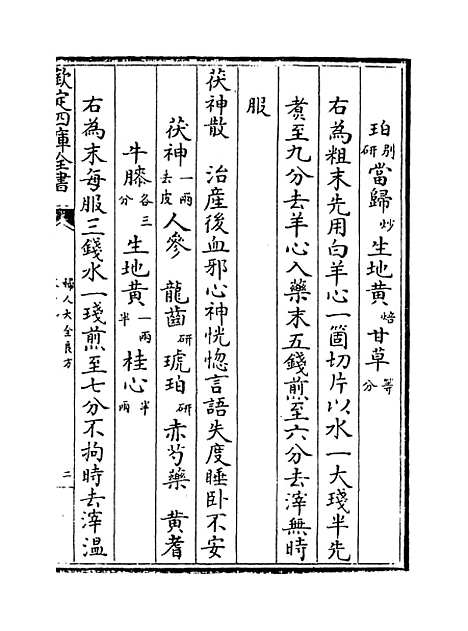 珀别研當歸炒生地黄焙甘草等分
右為粗末先用白羊心一箇切片以水一大琖半先
煮至九分去羊心入藥末五錢煎至六分去滓無時
服
茯神散　治産後血邪心神恍惚言語失度睡卧不安
茯神一兩去皮人參　龍齒研琥珀研赤芍藥　黄耆
牛膝各三分生地黄一兩半桂心半兩
右為末每服三錢水一琖煎至七分不拘時去滓溫
欽定四庫全書
婦人大全良方
二